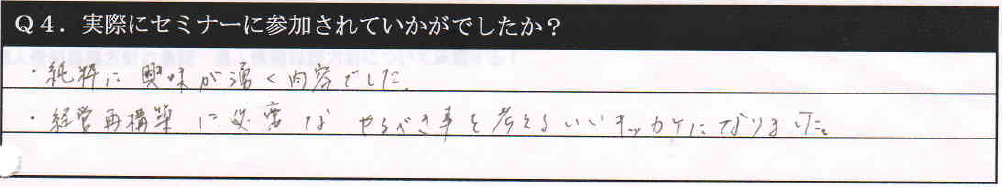 Q4．実際にセミナーに参加されていかがでしたか？
・純粋に興味が湧く内容でした。
・経営再構築に必要なやるべき事を考えるいいキッカケになりました。